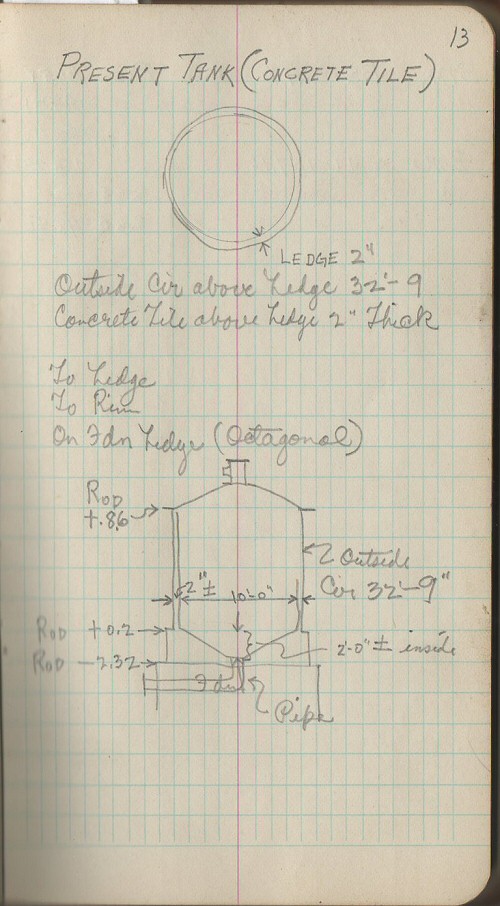 13
PRESENT TANK (CONCRETE TILE)
LEDGE 2"
Outside Cir above Ledge 32'-9
Concrete Tile above Ledge 2" Thick
To Ledge
To Rim
On Fdn Ledge (Octagonal)
ROD
+.86
Outside
Cir 32'-9"
2" ±
10'-0"
ROD +0.2
2'-0" ± inside
ROD -2.32
Fdn
Pipe